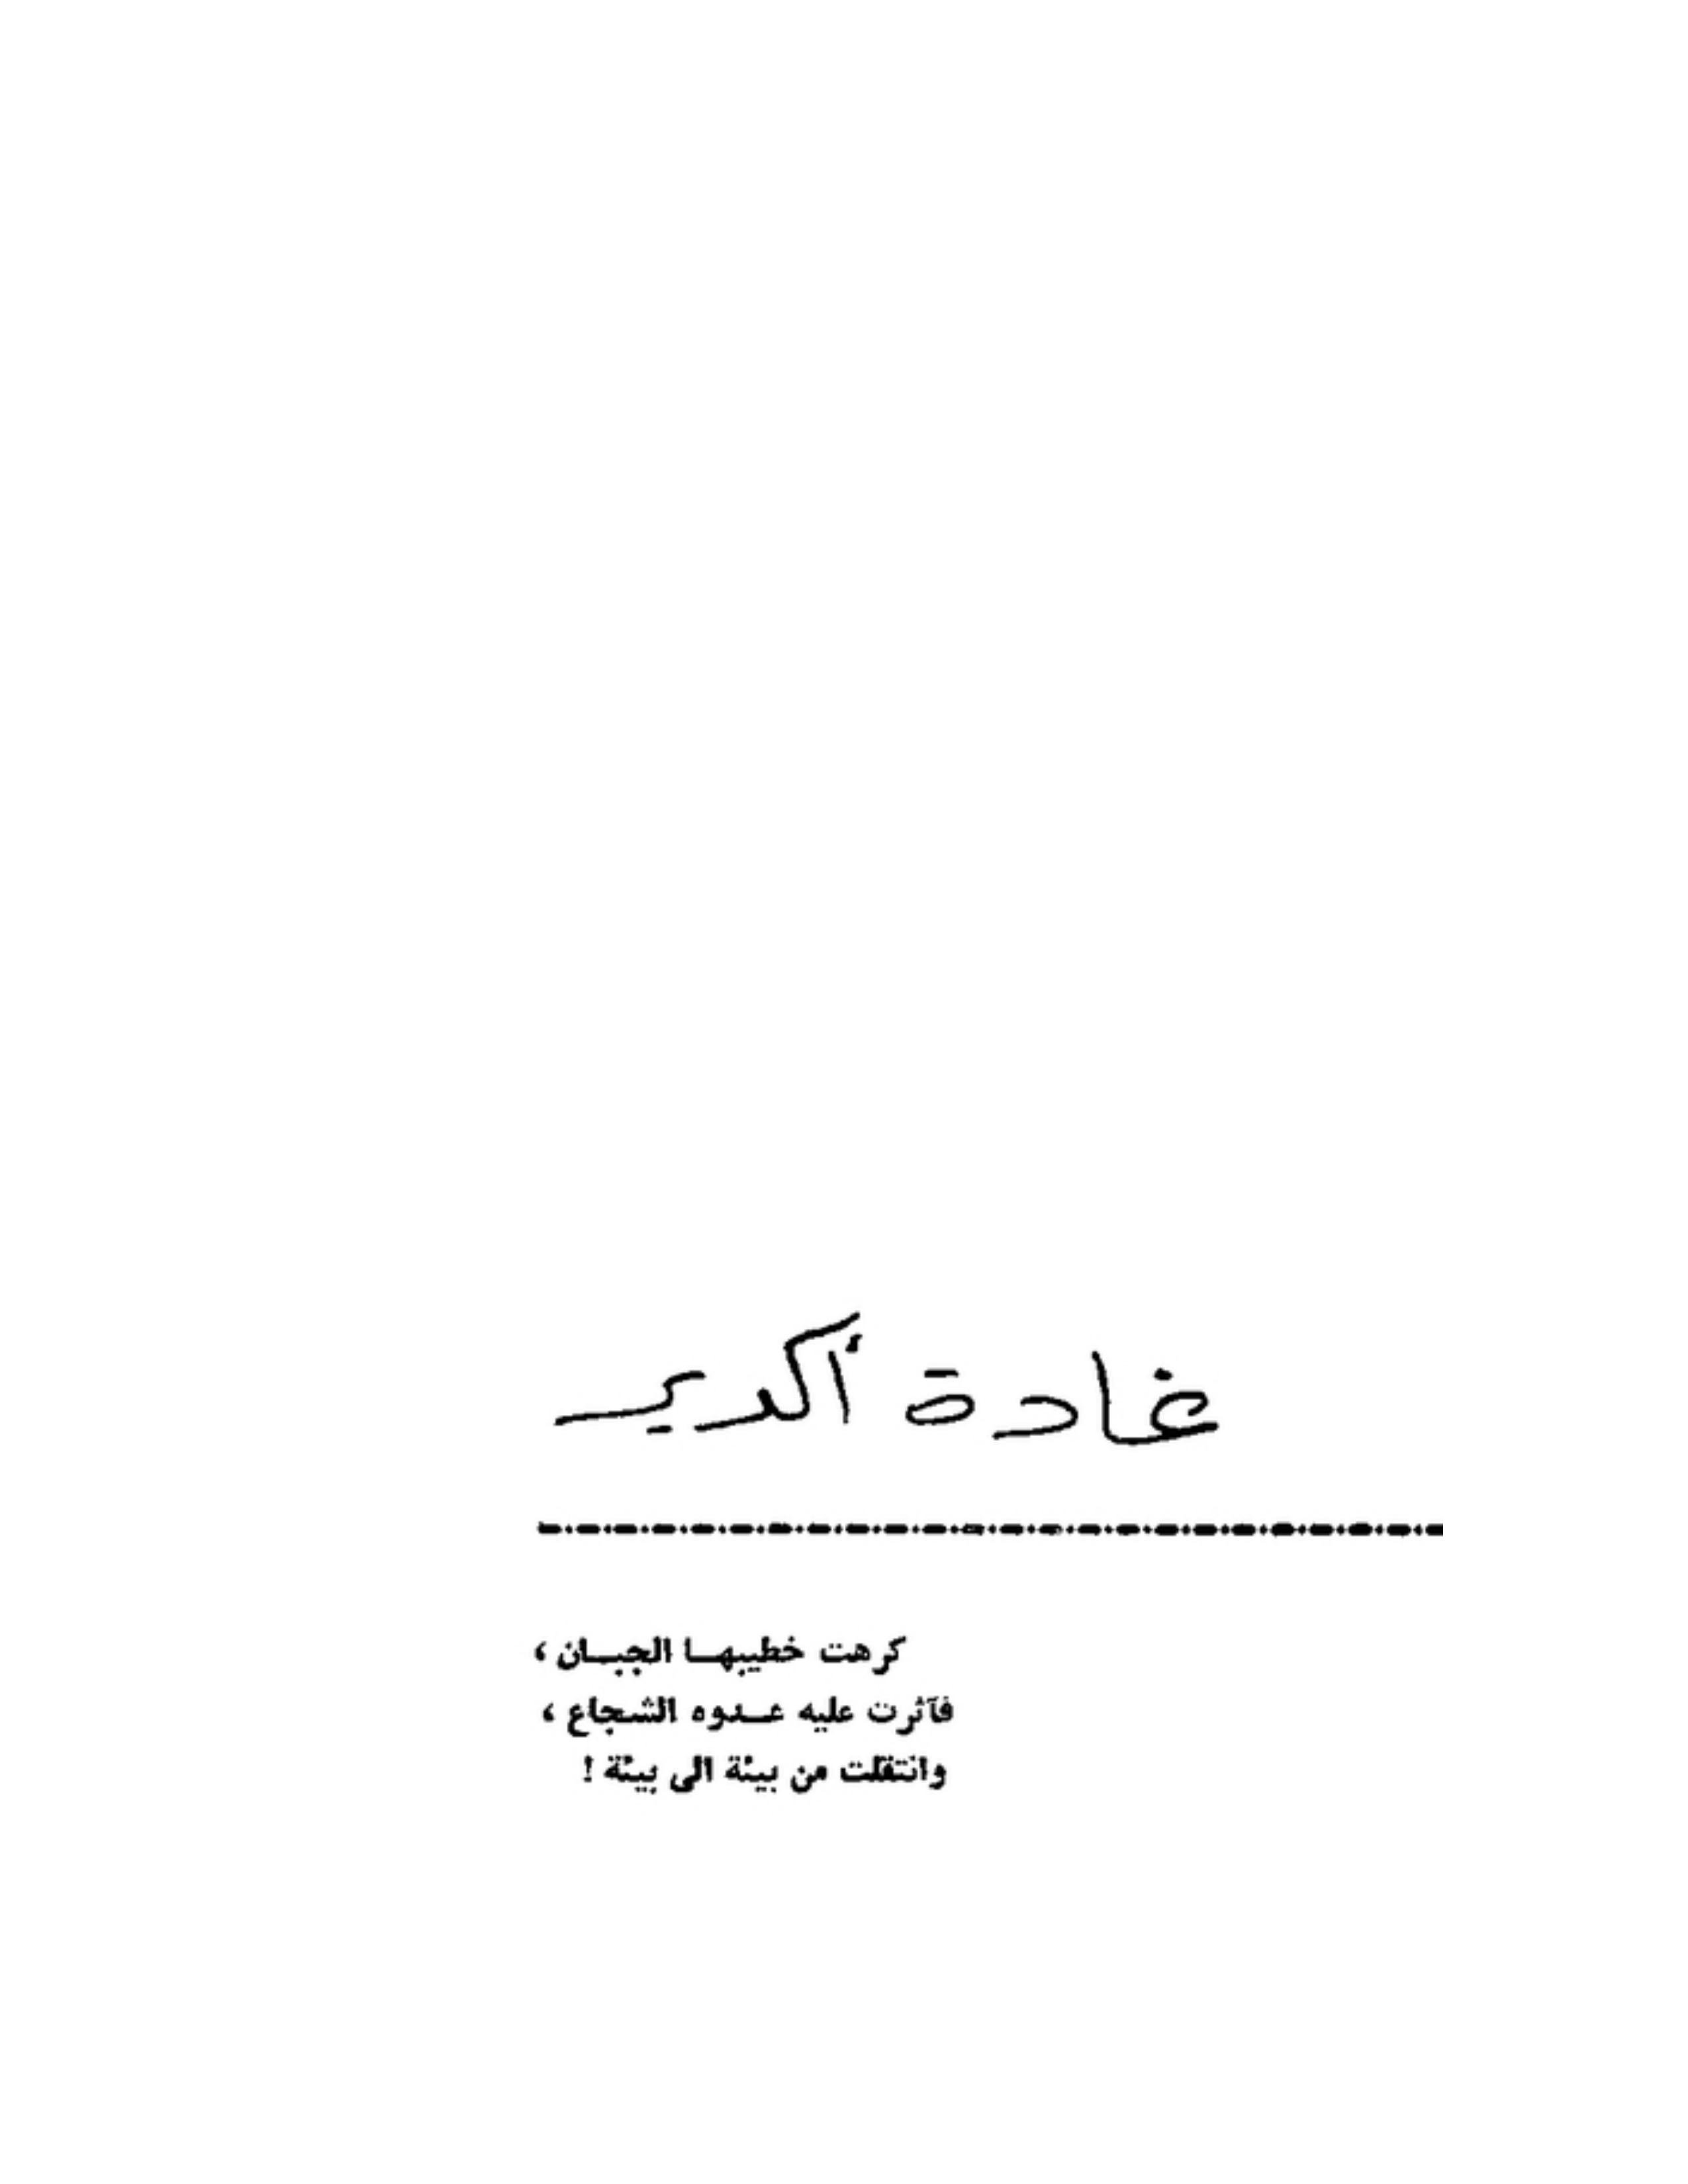 غادة أكدي
كرهت خطيبهـا الجبـان ،
فآثرت عليه عـدوه الشجاع ،
وانتقلت من بيئة الى بيئة !